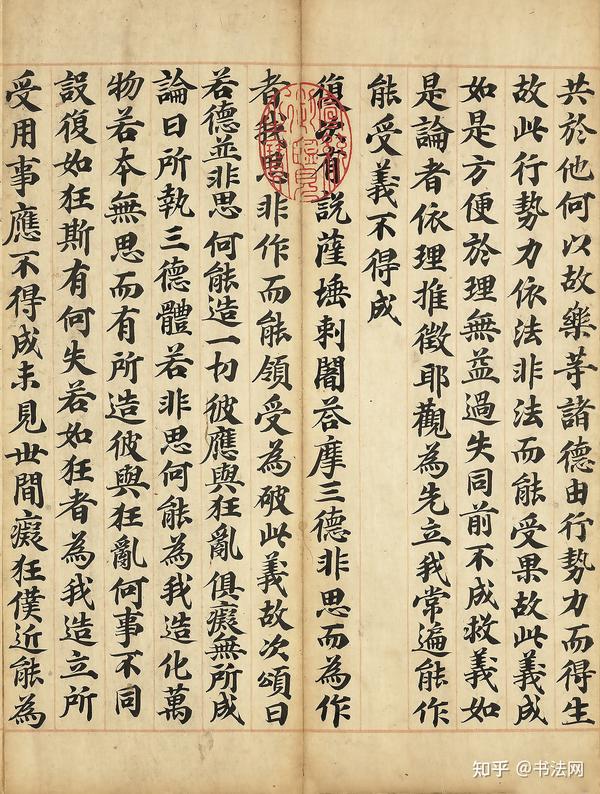 共於他何以故樂等諸德由行勢力而得生
故此行勢力依法非法而能受果故此義成
如是方便於理無益過失同前不成救義如
是論者依理推徵耶觀為先立我常遍能作
能受義不得成
復次有說薩埵剌闍荅摩三德非思而為作
者我思非作而能領受為破此義故次頌曰
若德並非思何能造一切彼應與狂亂俱癡無所成
論曰所執三德體若非思何能為我造化萬
物若本無思而有所造彼與狂亂何事不同
設復如狂斯有何失若如狂者為我造立所
受用事應不得成未見世間癡狂僕近能為
知乎 @书法网